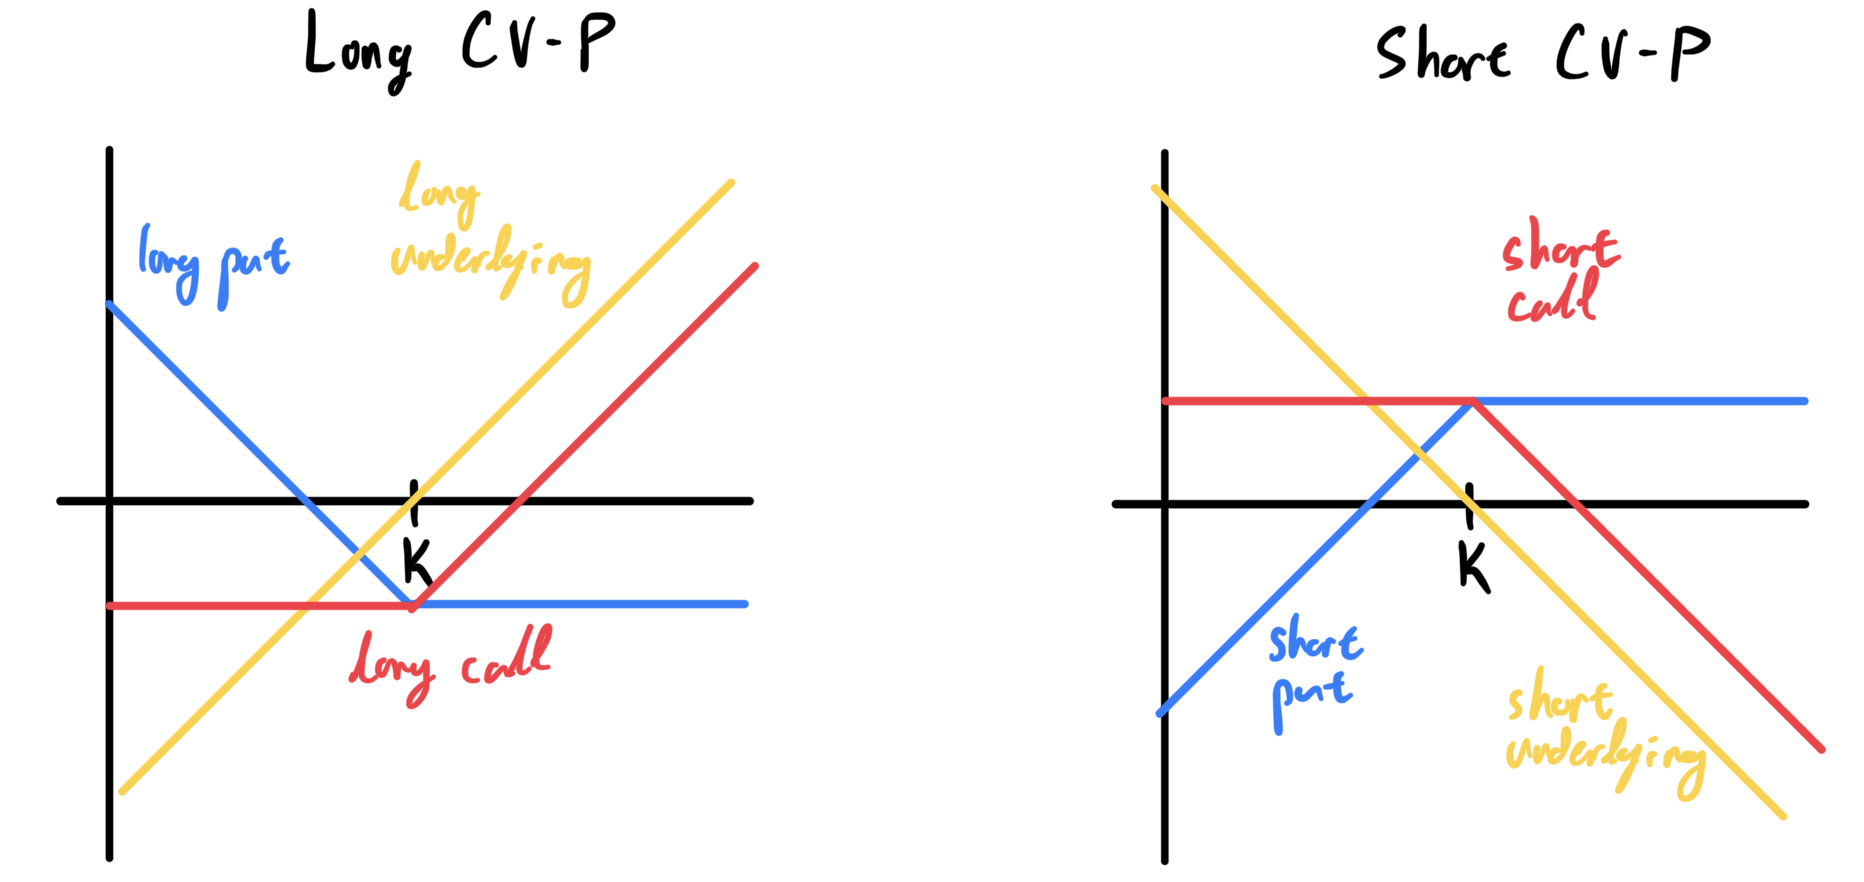 Long CV-P
long put
long
underlying
K
long call
Short CV-P
short
call
K
short
put
short
underlying